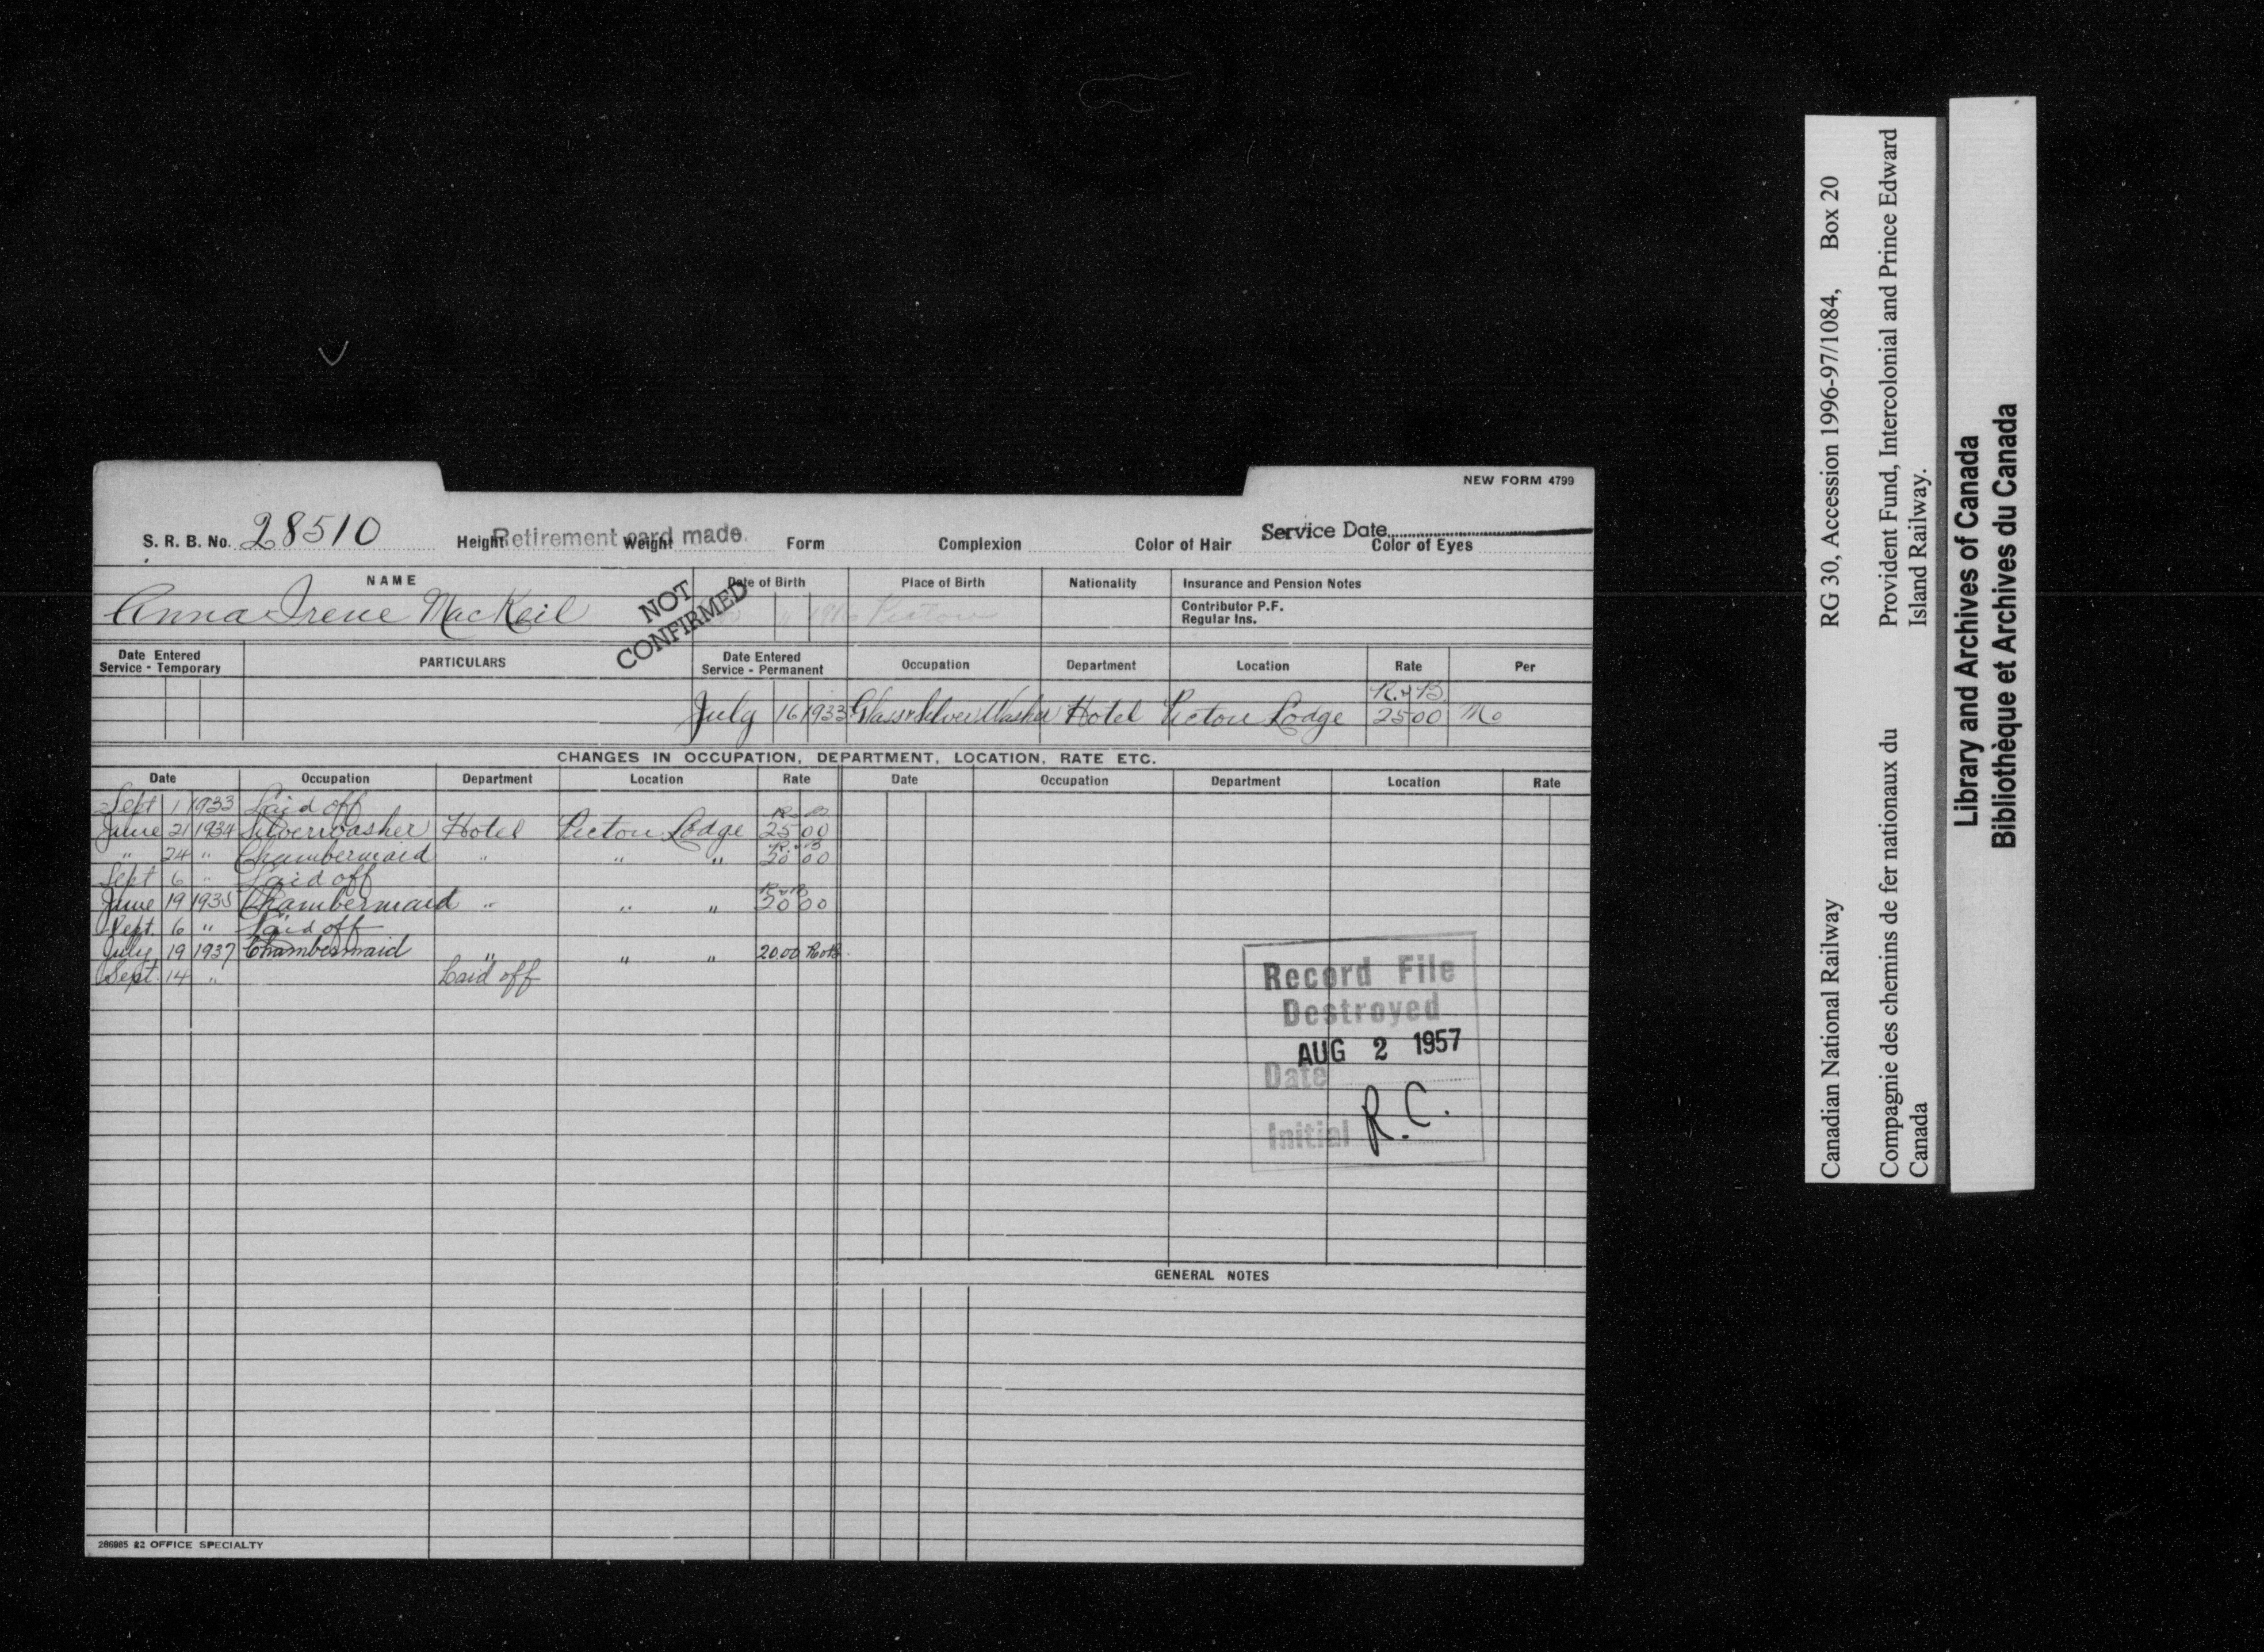 NEW FORM 4799
S. R. B. No. 28510 Height Weight Form Complexion Color of Hair Color of Eyes
Retirement card made.
Service Date
NAME Date of Birth Place of Birth Nationality Insurance and Pension Notes
Anna Irene MacKeil 1916 Pictou
NOT CONFIRMED
Contributor P.F.
Regular Ins.
Date Entered Service - Temporary PARTICULARS Date Entered Service - Permanent Occupation Department Location Rate Per
R. & B.
July 16 1933 Glass & Silver Washer Hotel Pictou Lodge 25 00 Mo
CHANGES IN OCCUPATION, DEPARTMENT, LOCATION, RATE ETC.
Date Occupation Department Location Rate Date Occupation Department Location Rate
Sept 1 1933 Laid off
R & B
June 21 1934 Silverwasher Hotel Pictou Lodge 25 00
R & B
" 24 " Chambermaid " " " 20 00
Sept 6 " Laid off
R & B
June 19 1935 Chambermaid " " " 20 00
Sept. 6 " Laid off
July 19 1937 Chambermaid " " " 20.00
Sept. 14 " Laid off
Record File
Destroyed
AUG 2 1957
Date
Initial R.C.
GENERAL NOTES
286985 22 OFFICE SPECIALTY
Canadian National Railway RG 30, Accession 1996-97/1084, Box 20
Compagnie des chemins de fer nationaux du Canada
Provident Fund, Intercolonial and Prince Edward Island Railway.
Library and Archives of Canada
Bibliothèque et Archives du Canada